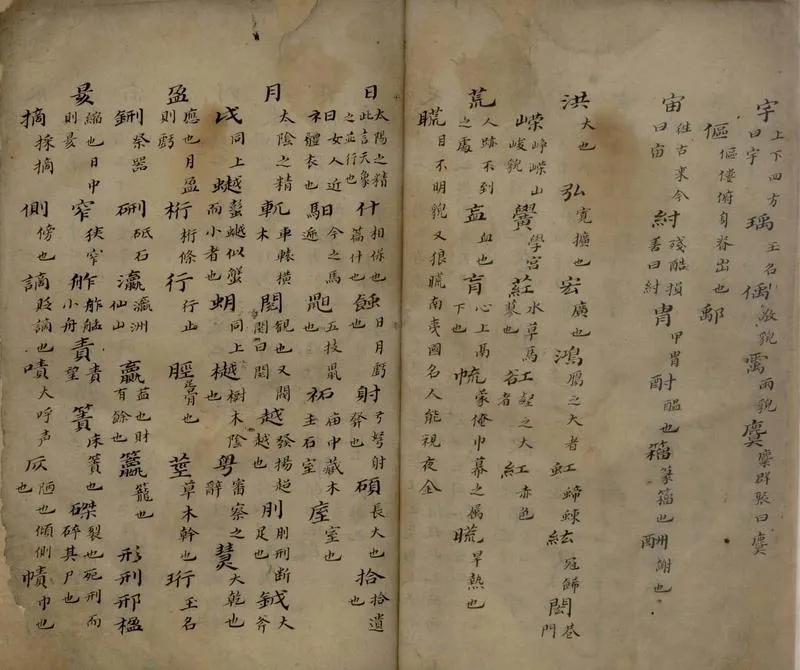 宇上下四方曰宇 瑀玉名 偊敬貌 寓雨貌 麌麋群聚曰麌
傴傴僂俯身脊出也 鄅
宙往古來今曰宙 紂殘酷損善曰紂 冑甲冑 酎醖也 籀篆籀也 酬謝也
洪大也 弘寬擴也 宏廣也 鴻鴈之大者 虹螮蝀 紘冠飾 閎巷門
嶸崢嶸山峻貌 黌學宮 葒水草馬 之大者 紅赤色
荒人跡不到之處 衁血也 肓心上鬲下也 㡆蒙俺巾幕之属 旱熱也
䀮目不明貌又狼䀮南夷國名人能視夜金
日太陽之精此言天象之並行也 什相保也篇什也 蝕日月虧 射弓弩射発也 碩長大也 拾拾遺也
衵日女人近體衣也 馹今之馬逓也 鼫五技鼠也 祏庙中藏木主石室 室也
月太陰之精 軏車轅橫木 閱觀也又閥閱曰閱 越發揚超越也 刖刖刑斷足也 鉞大斧
戉同上 䗊蟚䗊似蟹而小者也 蚏同上 樾樹木陰也 粤審察之辭 大乾也
盈應也月盈則虧 桁桁條 行行止 脛足骨也 莖草木幹也 珩玉名
鉶祭器 硎砥石 瀛瀛洲仙山 贏益也財有餘也 籯籠也 形刑邢楹
昃縮也日中則昃 窄狹窄 舴舴艋小舟 責責望 簀床簀也 磔裂也死刑而碎其尸也
摘採摘 側傍也 謫貶謫也 嘖大呼声 仄陋也傾側也 幘巾也